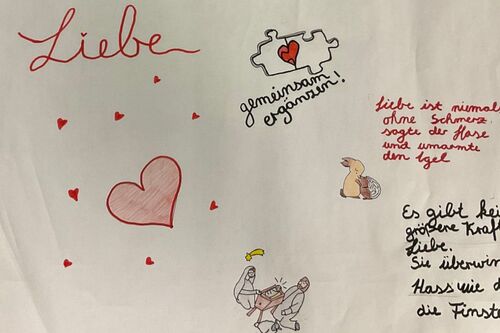 Liebe
gemeinsam
ergänzen!
Liebe ist niemals
ohne Schmerz.
sagte der Hase
und umarmte
den Igel
Es gibt
größere
Liebe.
Sie
Hass wie
die